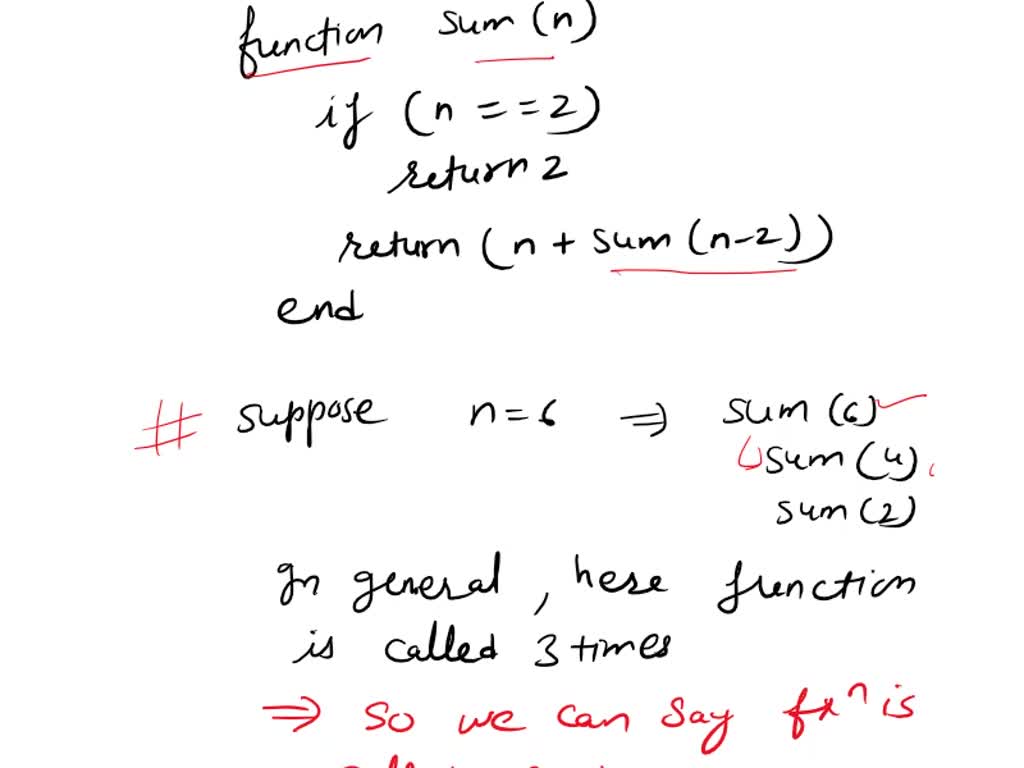 function sum (n)
if (n == 2)
return 2
return (n + sum (n-2))
end
# suppose n = 6 ⇒ sum (6)
sum (4)
sum (2)
In general, here function
is called 3 times
⇒ So we can say fxⁿ is